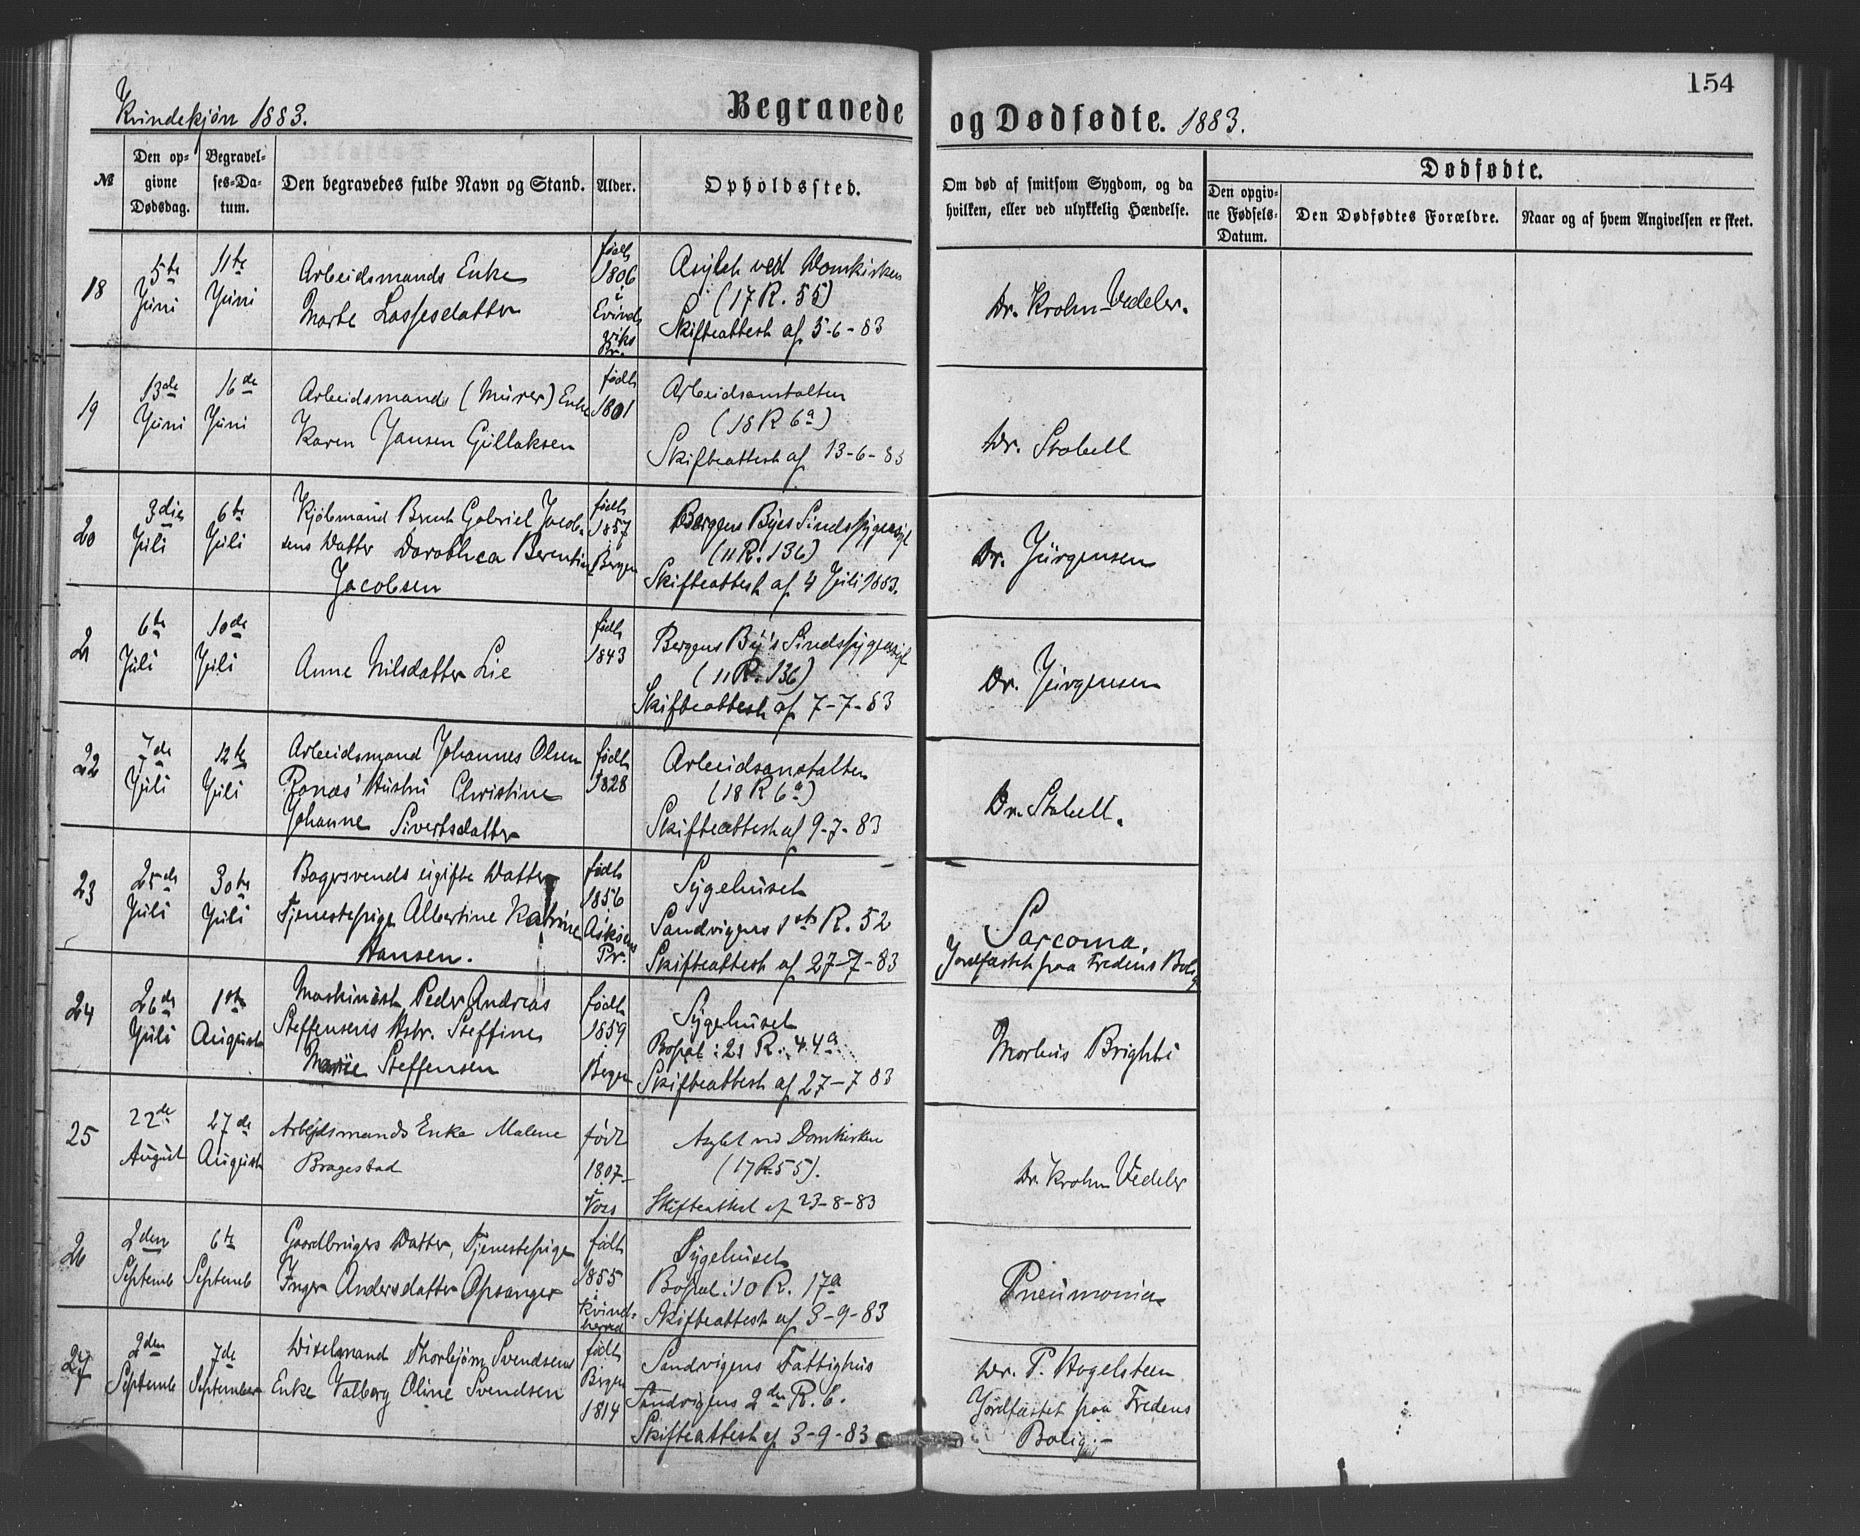 154
Kvindekjøn 1883.
Begravede og Dødfødte. 1883.
№
Den opgivne Dødsdag.
Begravelses-Datum.
Den begravedes fulde Navn og Stand.
Alder.
Opholdssted.
Om død af smitsom Sygdom, og da hvilken, eller ved ulykkelig Hændelse.
Dødfødte.
Den opgivne Fødsels-Datum.
Den Dødfødtes Forældre.
Naar og af hvem Angivelsen er skeet.
18
5te Juni
11te Juni
Arbeidsmands Enke
Marte Lassesdatter
født 1806 i Evindvigs Pr.
Asylet ved Domkirken
(17 R. 55)
Skifteattest af 5-6-83
Dr. Krohn-Vedeler.
19
13de Juni
16de Juni
Arbeidsmands (Murer) Enke
Karen Jansen Gullaksen
født 1801
Arbeidsanstalten
(18 R 6a)
Skifteattest af 13-6-83
Dr. Stabell
20
3die Juli
6te Juli
Kjøbmand Brent Gabriel Jacob-
sens Datter Dorothea Berentine
Jacobsen
født 1857 Bergen
Bergens Byes Sindssygeasyl
(11 R. 136)
Skifteattest af 4 Juli 1883.
Dr. Jürgensen
21
6te Juli
10de Juli
Anne Nilsdatter Lie
født 1843
Bergens By's Sindssygeasyl
(11 R. 136)
Skifteattest af 7-7-83
Dr. Jürgensen
22
7de Juli
12te Juli
Arbeidsmand Johannes Olsen
Ronæs' Hustru Christine
Johanne Sivertsdatter
født 1828
Arbeidsanstalten
(18 R 6a)
Skifteattest af 9-7-83
Dr. Stabell.
23
25de Juli
30te Juli
Bagersvends ugifte Datter
Tjenestepige Albertine Katrine
Hansen.
født 1856 Askøens Pr.
Sygehuset
Sandvigens 1ste R. 52
Skifteattest af 27-7-83
Sarcoma.
Jordfæstet paa Fredens Bolig
24
26de Juli
1ste August
Maskinist Peder Andreas
Steffensens Hstr. Steffine
Marie Steffensen
født 1859 i Bergen
Sygehuset
Bopæl: 21 R. 44a
Skifteattest af 27-7 83
Morbus Brighti
25
22de August
27de August
Arbejdsmands Enke Malene
Bragestad
født 1807 Vors
Asylet ved Domkirken
(17 R. 55).
Skifteattest af 23-8-83
Dr. Krohn Vedeler
26
2den Septemb
6te Septemb
Gaardbrugers Datter, Tjenestepige
Inger Andersdatter Opsanger
født 1855 i Kvindherred
Sygehuset
Bopæl: 10 R. 17a
Skifteattest af 3-9-83
Pneumonia
27
2den Septemb
7de September
Dixelmand Thorbjørn Svendsens
Enke Valborg Oline Svendsen
født Bergen 1814
Sandvigens Fattighus
Sandvigens 2den R. 6.
Skifteattest af 3-9-83
Dr. P. Hagelsteen
Jordfæstet paa Fredens
Bolig.-